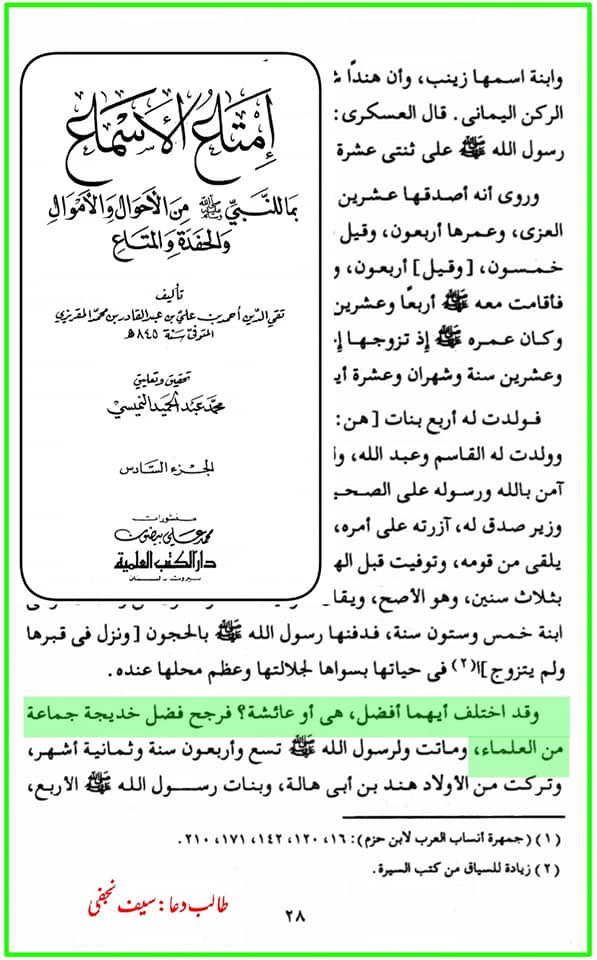 إمتاع الأسماع
بما للنبي ﷺ من الأحوال والأموال
والحفدة والمتاع
تأليف
تقي الدين أحمد بن علي بن عبد القادر بن محمد المقريزي
المتوفى سنة ٨٤٥ هـ
تحقيق وتعليق
محمد عبد الحميد النميسي
الجزء السادس
منشورات
محمد علي بيضون
دار الكتب العلمية
بيروت - لبنان
وابنة اسمها زينب، وأن هندًا
الركن اليمانى. قال العسكرى:
رسول الله ﷺ على ثنتى عشرة
وروى أنه أصدقها عشرين
العزى، وعمرها أربعون، وقيل
خمسون، [وقيل] أربعون، و
فأقامت معه ﷺ أربعًا وعشرين
وكان عمره ﷺ إذ تزوجها إ
وعشرين سنة وشهران وعشرة أي
فولدت له أربع بنات [هن:
وولدت له القاسم وعبد الله، وا
آمن بالله ورسوله على الصحي
وزير صدق له، آزرته على أمره،
يلقى من قومه، وتوفيت قبل اله
بثلاث سنين، وهو الأصح، ويقا
ابنة خمس وستون سنة، فدفنها رسول الله ﷺ بالحجون [ونزل فى قبرها
ولم يتزوج]ا(٢) فى حياتها بسواها لجلالتها وعظم محلها عنده.
وقد اختلف أيهما أفضل، هى أو عائشة؟ فرجح فضل خديجة جماعة
من العلماء، وماتت ولرسول الله ﷺ تسع وأربعون سنة وثمانية أشهر،
وتركت من الأولاد هند بن أبى هالة، وبنات رسول الله ﷺ الأربع،
(١) (جمهرة أنساب العرب لابن حزم): ١٦، ١٢٠، ١٤٢، ١٧١، ٢١٠.
(٢) زيادة للسياق من كتب السيرة.
٢٨
طالب دعا: سیف نجفی